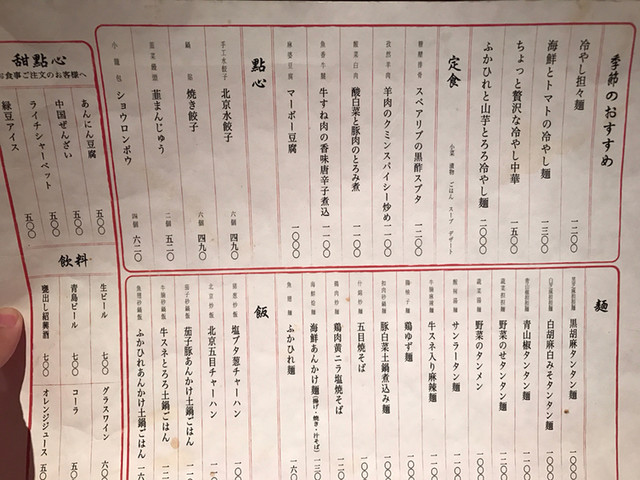 季節のおすすめ
冷やし担々麺 一二〇〇
海鮮とトマトの冷やし麺 一三〇〇
ちょっと贅沢な冷やし中華 一五〇〇
ふかひれと山芋とろろ冷やし麺 二〇〇〇
定食
小菜 漬物 ごはん スープ デザート
糖醋排骨 スペアリブの黒酢スブタ 一二〇〇
孜然羊肉 羊肉のクミンスパイシー炒め 一一〇〇
酸菜白肉 酸白菜と豚肉のとろみ煮 一一〇〇
魚香牛腱 牛すね肉の香味唐辛子煮込 一一〇〇
麻婆豆腐 マーボー豆腐 一〇〇〇
點心
手工水餃子 北京水餃子 六個 四九〇
鍋貼 焼き餃子 六個 四九〇
韮まんじゅう 二個 五二〇
小籠包 ショウロンポウ 四個 六二〇
甜點心
お食事ご注文のお客様へ
あんにん豆腐 五〇〇
中国ぜんざい 五〇〇
ライチシャーベット 五〇〇
緑豆アイス 五〇〇
麺
黒胡麻タンタン麺
白胡麻白みそタンタン麺
青山椒タンタン麺
野菜のせタンタン麺
野菜のタンメン
サンラータン麺
牛スネ入り麻辣麺
鶏ゆず麺
豚白菜土鍋煮込み麺
五目焼そば
鶏肉黄ニラ塩焼そば
海鮮あんかけ麺(揚げ・焼き・汁そば)
ふかひれ麺
飯
塩ブタ葱チャーハン
北京五目チャーハン
茄子豚あんかけ土鍋ごはん
牛スネとろろ土鍋ごはん
ふかひれあんかけ土鍋ごはん
飲料
生ビール 七〇〇
青島ビール 七〇〇
甕出し紹興酒 七〇〇
グラスワイン
コーラ
オレンジジュース